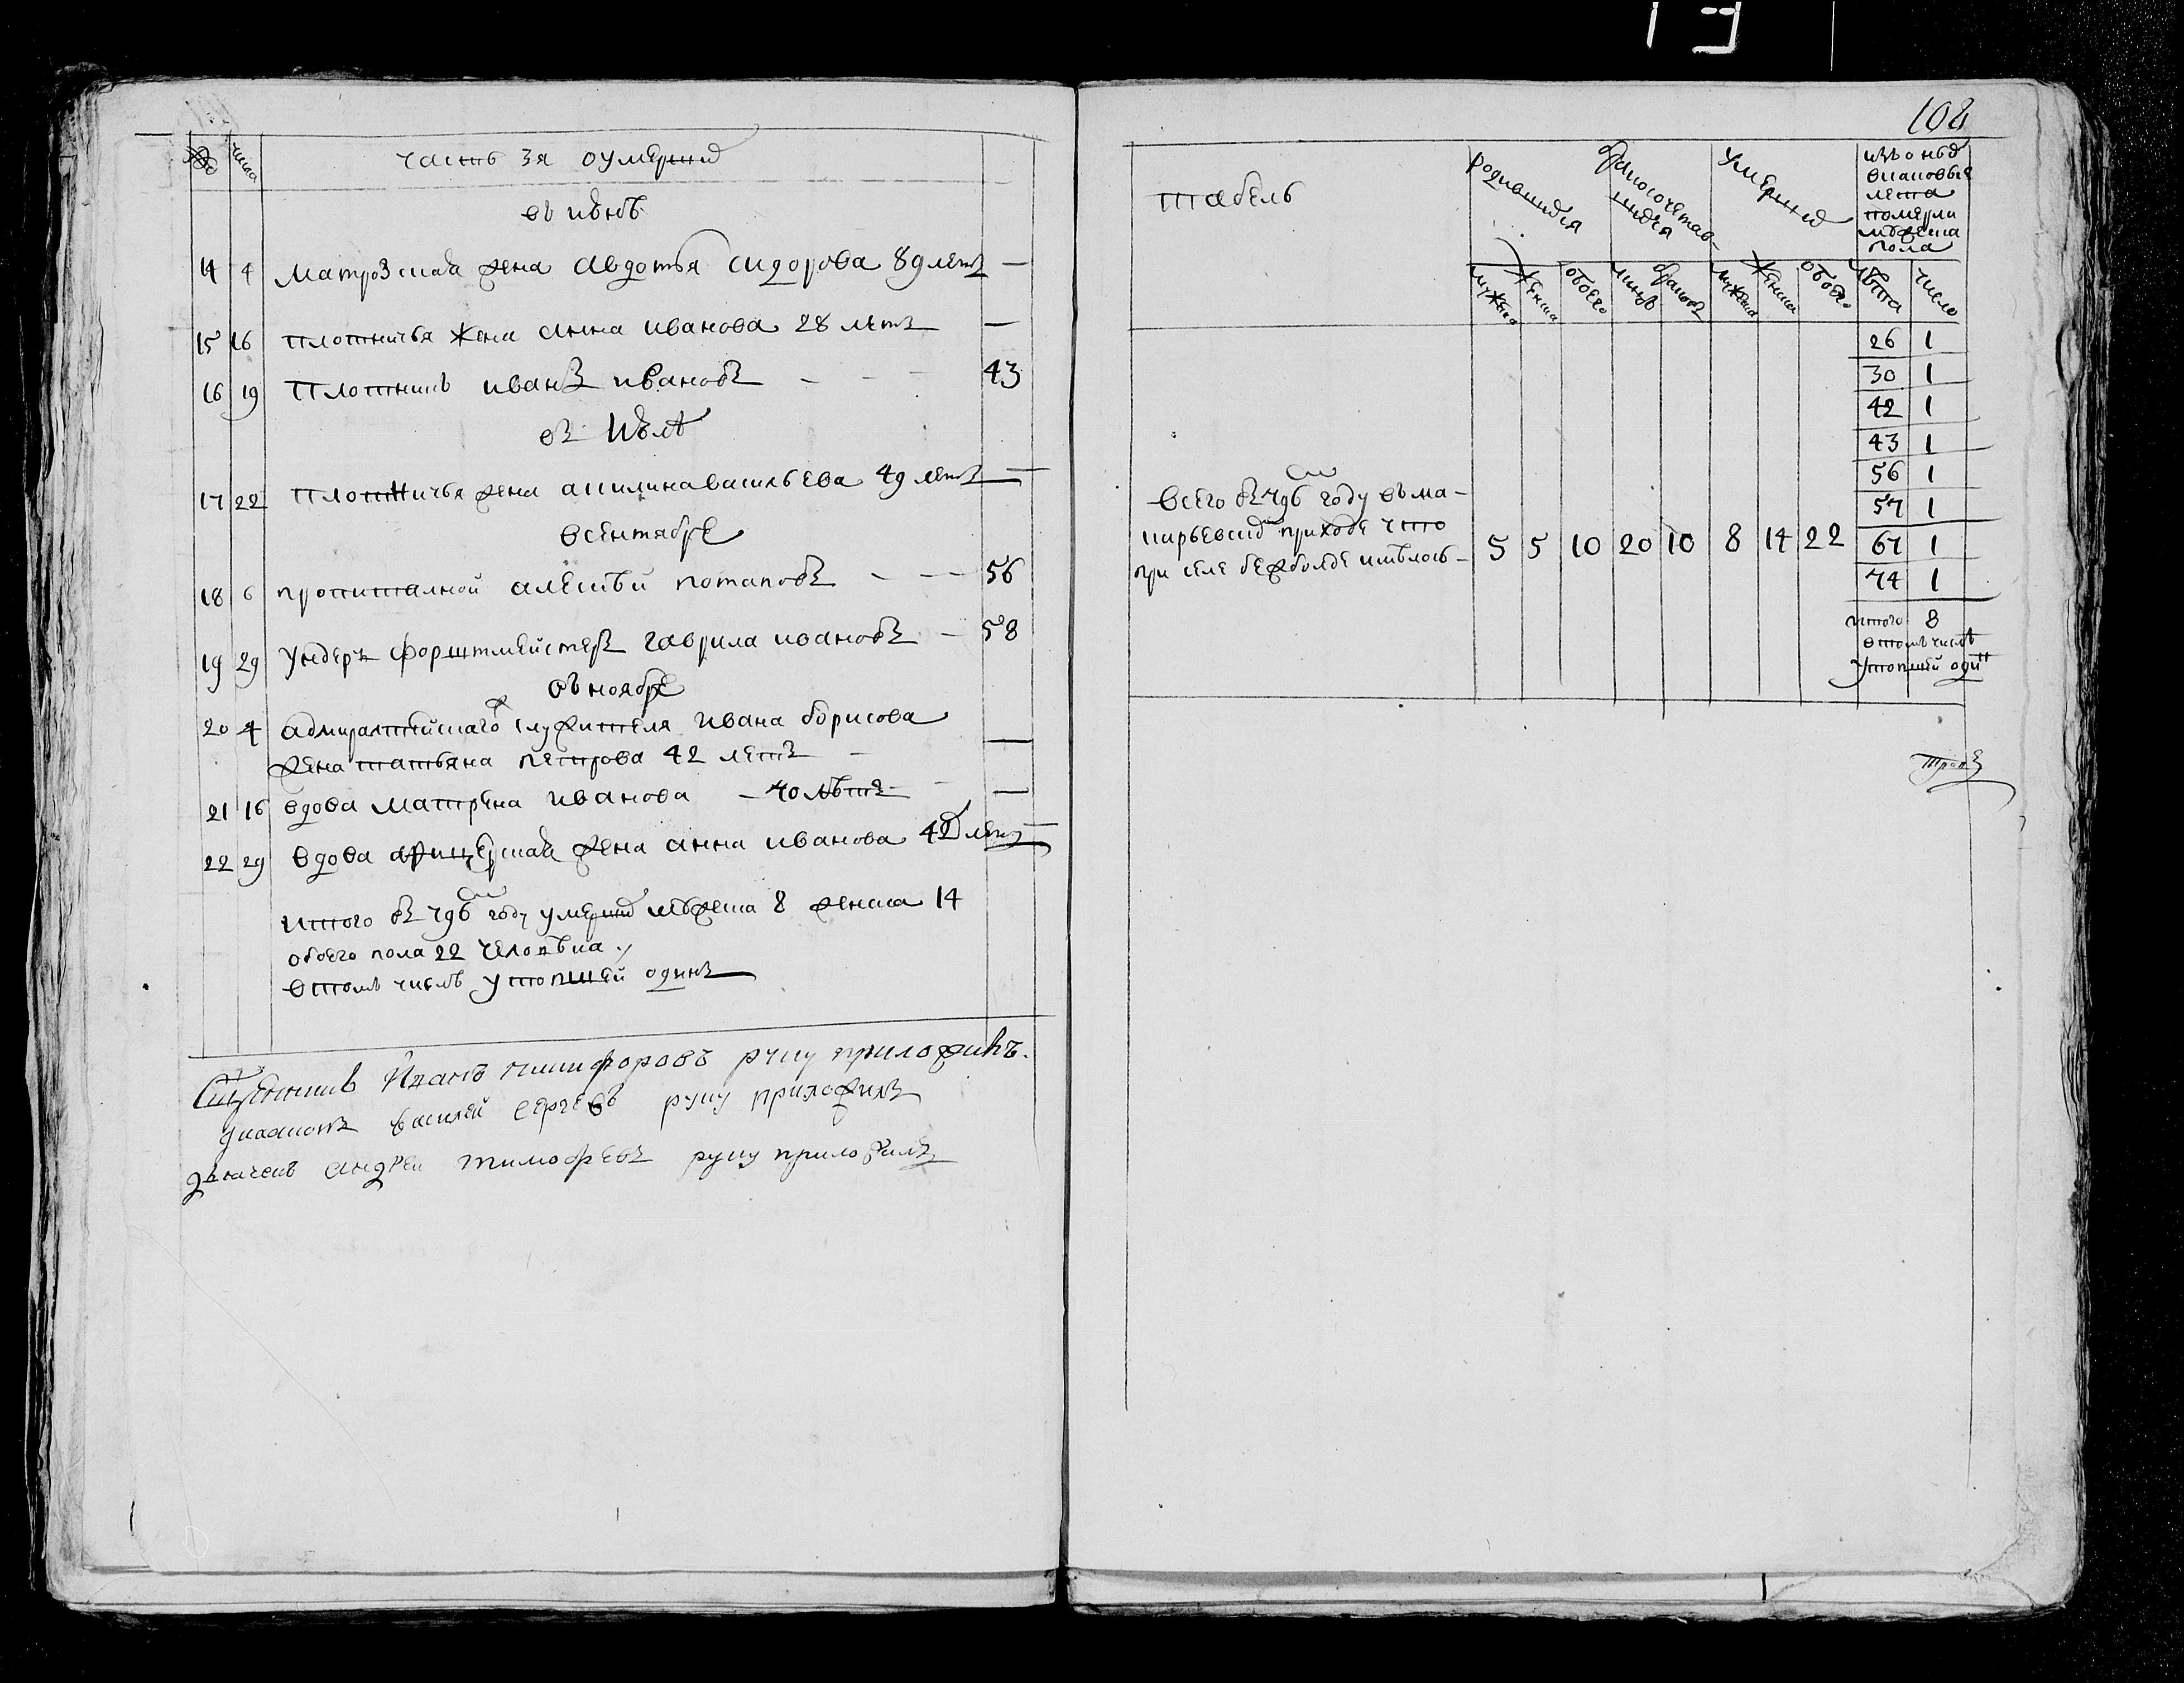 № числа часть 3я о умершихъ
въ июнѣ
14 4 матрозская жена авдотья сидорова 89 летъ —
15 16 плотничья жена анна иванова 28 летъ —
16 19 плотникъ иванъ ивановъ - - - 43
въ июлѣ
17 22 плотничья жена акилина васильева 49 летъ —
в сентябре
18 6 пропиталной алексѣй потаповъ - — 56
19 29 ундеръ форштмейстеръ гаврила ивановъ — 58
въ ноябре
20 4 адмиралтейскаго служителя ивана борисова
жена татьяна петрова 42 летъ — —
21 16 вдова матрена иванова — 70 лѣтъ — —
22 29 вдова афицерская жена анна иванова 42 летъ —
итого въ 796 году умершихъ мужеска 8 женска 14
обоего пола 22 человѣка
в томъ числѣ утопшей одинъ
Священникъ Иванъ никифоровъ руку приложилъ.
диаконъ василей сергеевъ руку приложилъ
дьячекъ андрей тимофеевъ руку приложилъ
108
табель
родившихся
бракосочетав-
шихся
умершихъ
изъ оныхъ
в каковые
лета
померли
мужеска
пола
мужеска женска обоего лицъ браковъ мужеска женска обоего лѣта число
26 1
30 1
42 1
43 1
56 1
57 1
67 1
74 1
всего въ 796 году въ ма-
карьевскомъ приходе что
при селе имѣлось - 5 5 10 20 10 8 14 22
итого 8
в томъ числѣ
утопшей одинъ